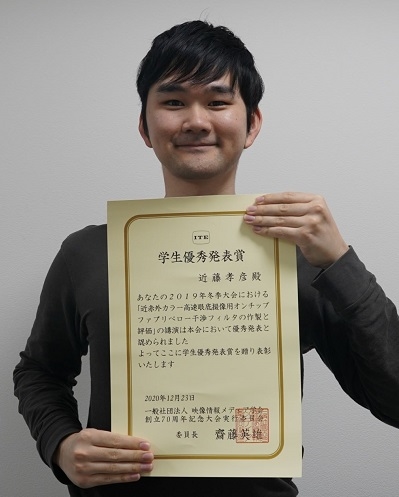 ITE
学生優秀発表賞
近藤孝彦 殿
あなたの２０１９年冬季大会における
「近赤外カラー高速眼底撮像用オンチップ
ファブリペロー干渉フィルタの作製と
評価」の講演は本会において優秀発表と
認められました
よってここに学生優秀発表賞を贈り表彰
いたします
2020年12月23日
一般社団法人 映像情報メディア学会
創立70周年記念大会実行委員会
委員長 齋藤英雄